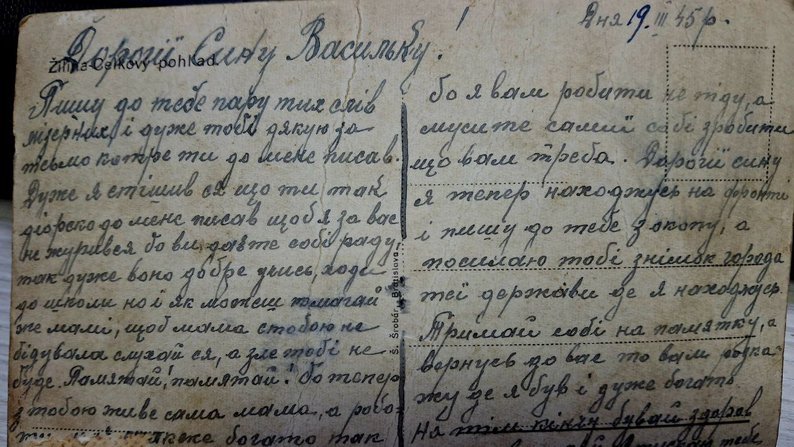 Дня 19.III 45р.
Дорогії Сину Васильку!
Žilina-Celkový pohľad
Пишу до тебе пару тих слів
мізерних, і дуже тобі дякую за
письмо котре ти до мене писав.
Дуже я стішив ся що ти так
до мене писав щоб я за вас
не журився бо ви дасте собі раду
так дуже воно добре учись, ходи
до школи но і як можеш помагай
же мамі, щоб мама с тобою не
бідувала слухай ся, а зле тобі не
буде. Памятай! памятай! бо тепер
з тобою живе сама мама, а робо-
богато так
бо я вам робити не піду, а
мусите самії собі зробити
що вам треба. Дорогії сину
я тепер находжусь на фронті
і пишу до тебе з окопу, а
посилаю тобі знімок города
теї держави де я находжусь.
Тримай собі на памятку, а
вернусь до вас то вам розка-
жу де я був і дуже богать
на тім кінчу бувай здоров
тебе
S. Šrobár, Bratislava.